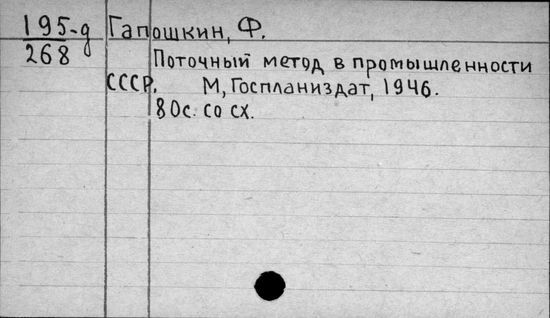 195-д Гапошкин, Ф.
268
Поточный метод в промышленности
СССР. М, Госпланиздат, 1946.
80с. со сх.